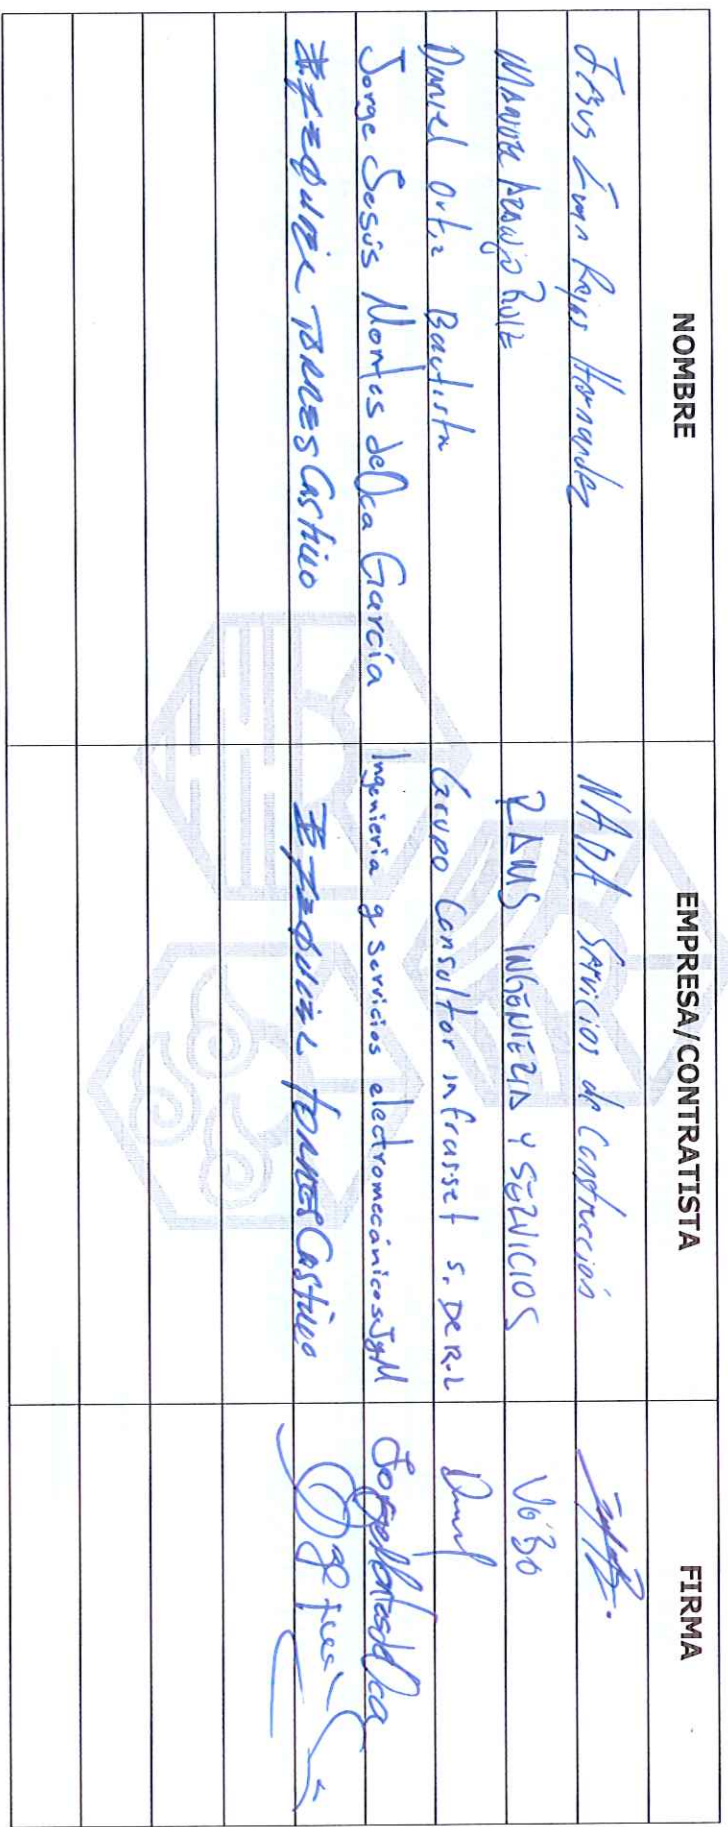 NOMBRE EMPRESA/CONTRATISTA FIRMA
Jesus Ivan Rojas Hernandez NADA Servicios de Construcción
MANUEL ARAUJO RUIZ RAMS INGENIERIA Y SERVICIOS VoBo
Daniel Ortiz Bautista Grupo Consultor infrasset S. DE R.L Daniel
Jorge Jesús Montes de Oca García Ingeniería y Servicios electromecánicos JgM JorgeMontesdeOca
EZEQUIEL TORRES Castillo EZEQUIEL TORRES Castillo